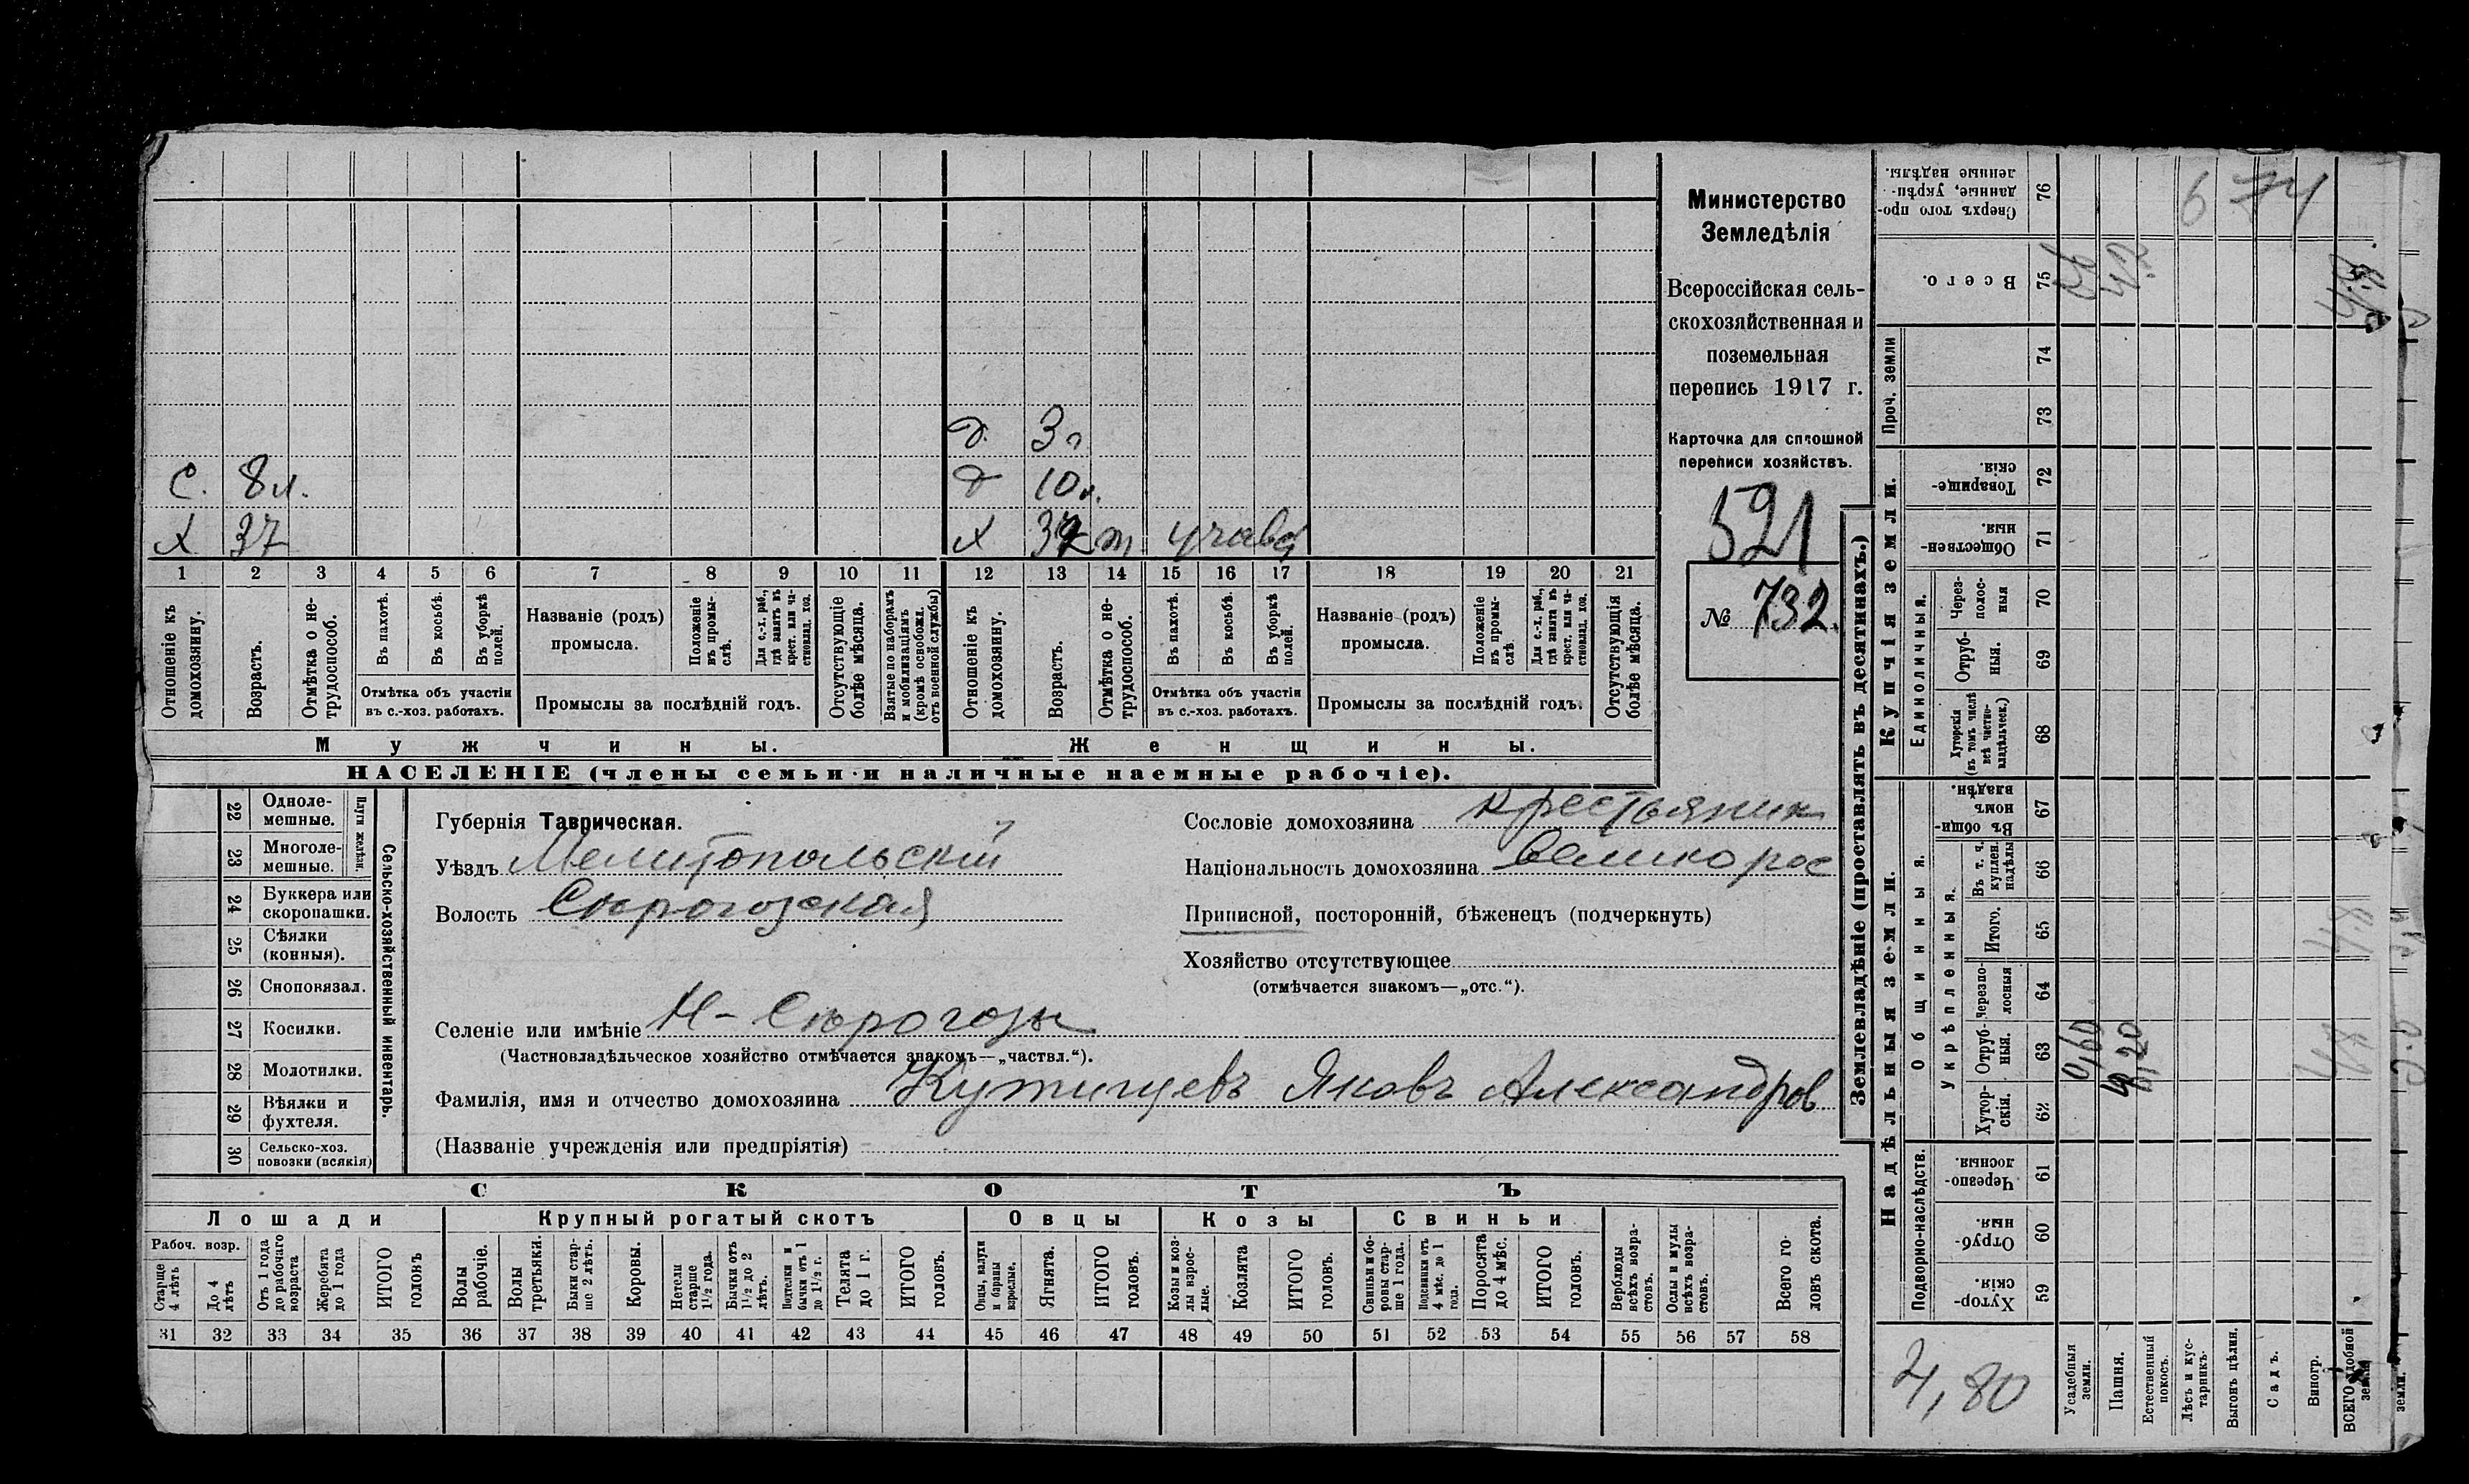 Министерство
Земледѣлія
Всероссійская сель-
скохозяйственная и
поземельная
перепись 1917 г.
Карточка для сплошной
переписи хозяйствъ.
521
№ 732.
д. 3 г
С. 8 л. д 10 л.
Х 37 х
1 2 3 4 5 6 7 8 9 10 11 12 13 14 15 16 17 18 19 20 21
Отношеніе къ домохозяину.
Возрастъ.
Отмѣтка о не-трудоспособ.
Въ пахотѣ.
Въ косьбѣ.
Въ уборкѣ полей.
Отмѣтка объ участіи
въ с.-хоз. работахъ.
Названіе (родъ)
промысла.
Положеніе въ промы-слѣ.
Для с.-х. раб., гдѣ занятъ въ крест. или ча-стновлад. хоз.
Промыслы за послѣдній годъ.
Отсутствующіе болѣе мѣсяца.
Взятые по наборамъ и мобилизаціямъ (кромѣ освобожд. отъ военной службы)
Отношеніе къ домохозяину.
Возрастъ.
Отмѣтка о не-трудоспособ.
Въ пахотѣ.
Въ косьбѣ.
Въ уборкѣ полей.
Отмѣтка объ участіи
въ с.-хоз. работахъ.
Названіе (родъ)
промысла.
Положеніе въ промы-слѣ.
Для с.-х. раб., гдѣ занята въ крест. или ча-стновлад. хоз.
Промыслы за послѣдній годъ.
Отсутствующія болѣе мѣсяца.
Мужчины. Женщины.
НАСЕЛЕНІЕ (члены семьи и наличные наемные рабочіе).
Сельско-хозяйственный инвентарь.
Плуги желѣзн.
22 Одноле-мешные.
23 Многоле-мешные.
24 Буккера или скоропашки.
25 Сѣялки (конныя).
26 Сноповязал.
27 Косилки.
28 Молотилки.
29 Вѣялки и фухтеля.
30 Сельско-хоз. повозки (всякія)
Губернія Таврическая.
Уѣздъ Мелитопольскій
Волость Сѣрогозская
Селеніе или имѣніе Н-Сѣрогозы
(Частновладѣльческое хозяйство отмѣчается знакомъ—„частвл.“).
Фамилія, имя и отчество домохозяина Кутищевъ Яковъ Александров
(Названіе учрежденія или предпріятія)
Сословіе домохозяина крестьянин
Національность домохозяина великорос
Приписной, посторонній, бѣженецъ (подчеркнуть)
Хозяйство отсутствующее
(отмѣчается знакомъ—„отс.“).
СКОТЪ
Лошади Крупный рогатый скотъ Овцы Козы Свиньи
Рабоч. возр.
Старше 4 лѣтъ
До 4 лѣтъ
Отъ 1 года до рабочаго возраста
Жеребята до 1 года
ИТОГО головъ
Волы рабочіе.
Волы третьяки.
Быки стар-ше 2 лѣтъ.
Коровы.
Нетели старше 1½ года.
Бычки отъ 1½ до 2 лѣтъ.
Подтелки и бычки отъ 1 до 1½ г.
Телята до 1 г.
ИТОГО головъ.
Овцы, валухи и бараны взрослые.
Ягнята.
ИТОГО головъ.
Козы и коз-лы взрос-лые.
Козлята
ИТОГО головъ.
Свиньи и бо-ровы стар-ше 1 года.
Подсвинки отъ 4 мѣс. до 1 года.
Поросята до 4 мѣс.
ИТОГО головъ.
Верблюды всѣхъ возра-стовъ.
Ослы и мулы всѣхъ возра-стовъ.
Всего го-ловъ скота.
31 32 33 34 35 36 37 38 39 40 41 42 43 44 45 46 47 48 49 50 51 52 53 54 55 56 57 58
Землевладѣніе (проставлять въ десятинахъ.)
Надѣльныя земли. Купчія земли. Проч. земли
Подворно-наслѣдств.
Общинныя.
Укрѣпленныя.
Единоличныя.
Хутор-скія. 59
Отруб-ныя. 60
Черезпо-лосныя. 61
Хутор-скія. 62
Отруб-ныя. 63
Черезпо-лосныя 64
Итого. 65
Въ т. ч. куплен. надѣлы 66
Въ общин-номъ владѣн. 67
Хуторскія (въ томъ числѣ всѣ частно-владѣльческ.) 68
Отруб-ныя. 69
Через-полос-ныя 70
Обществен-ныя. 71
Товарище-скія. 72
73
74
Всего. 75
Сверхъ того про-данные, укрѣп-ленные надѣлы. 76
Усадебныя земли. 0,60
Пашня.
Естественный покосъ.
Лѣсъ и кус-тарникъ.
Выгонъ цѣлин.
Садъ.
Виногр.
ВСЕГО удобной земли.
земли.
674
4,80